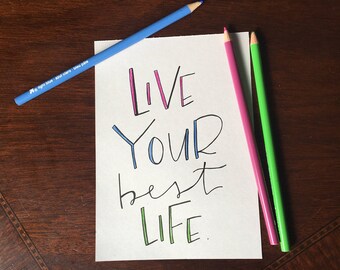 LIVE
YOUR
best
LIFE.